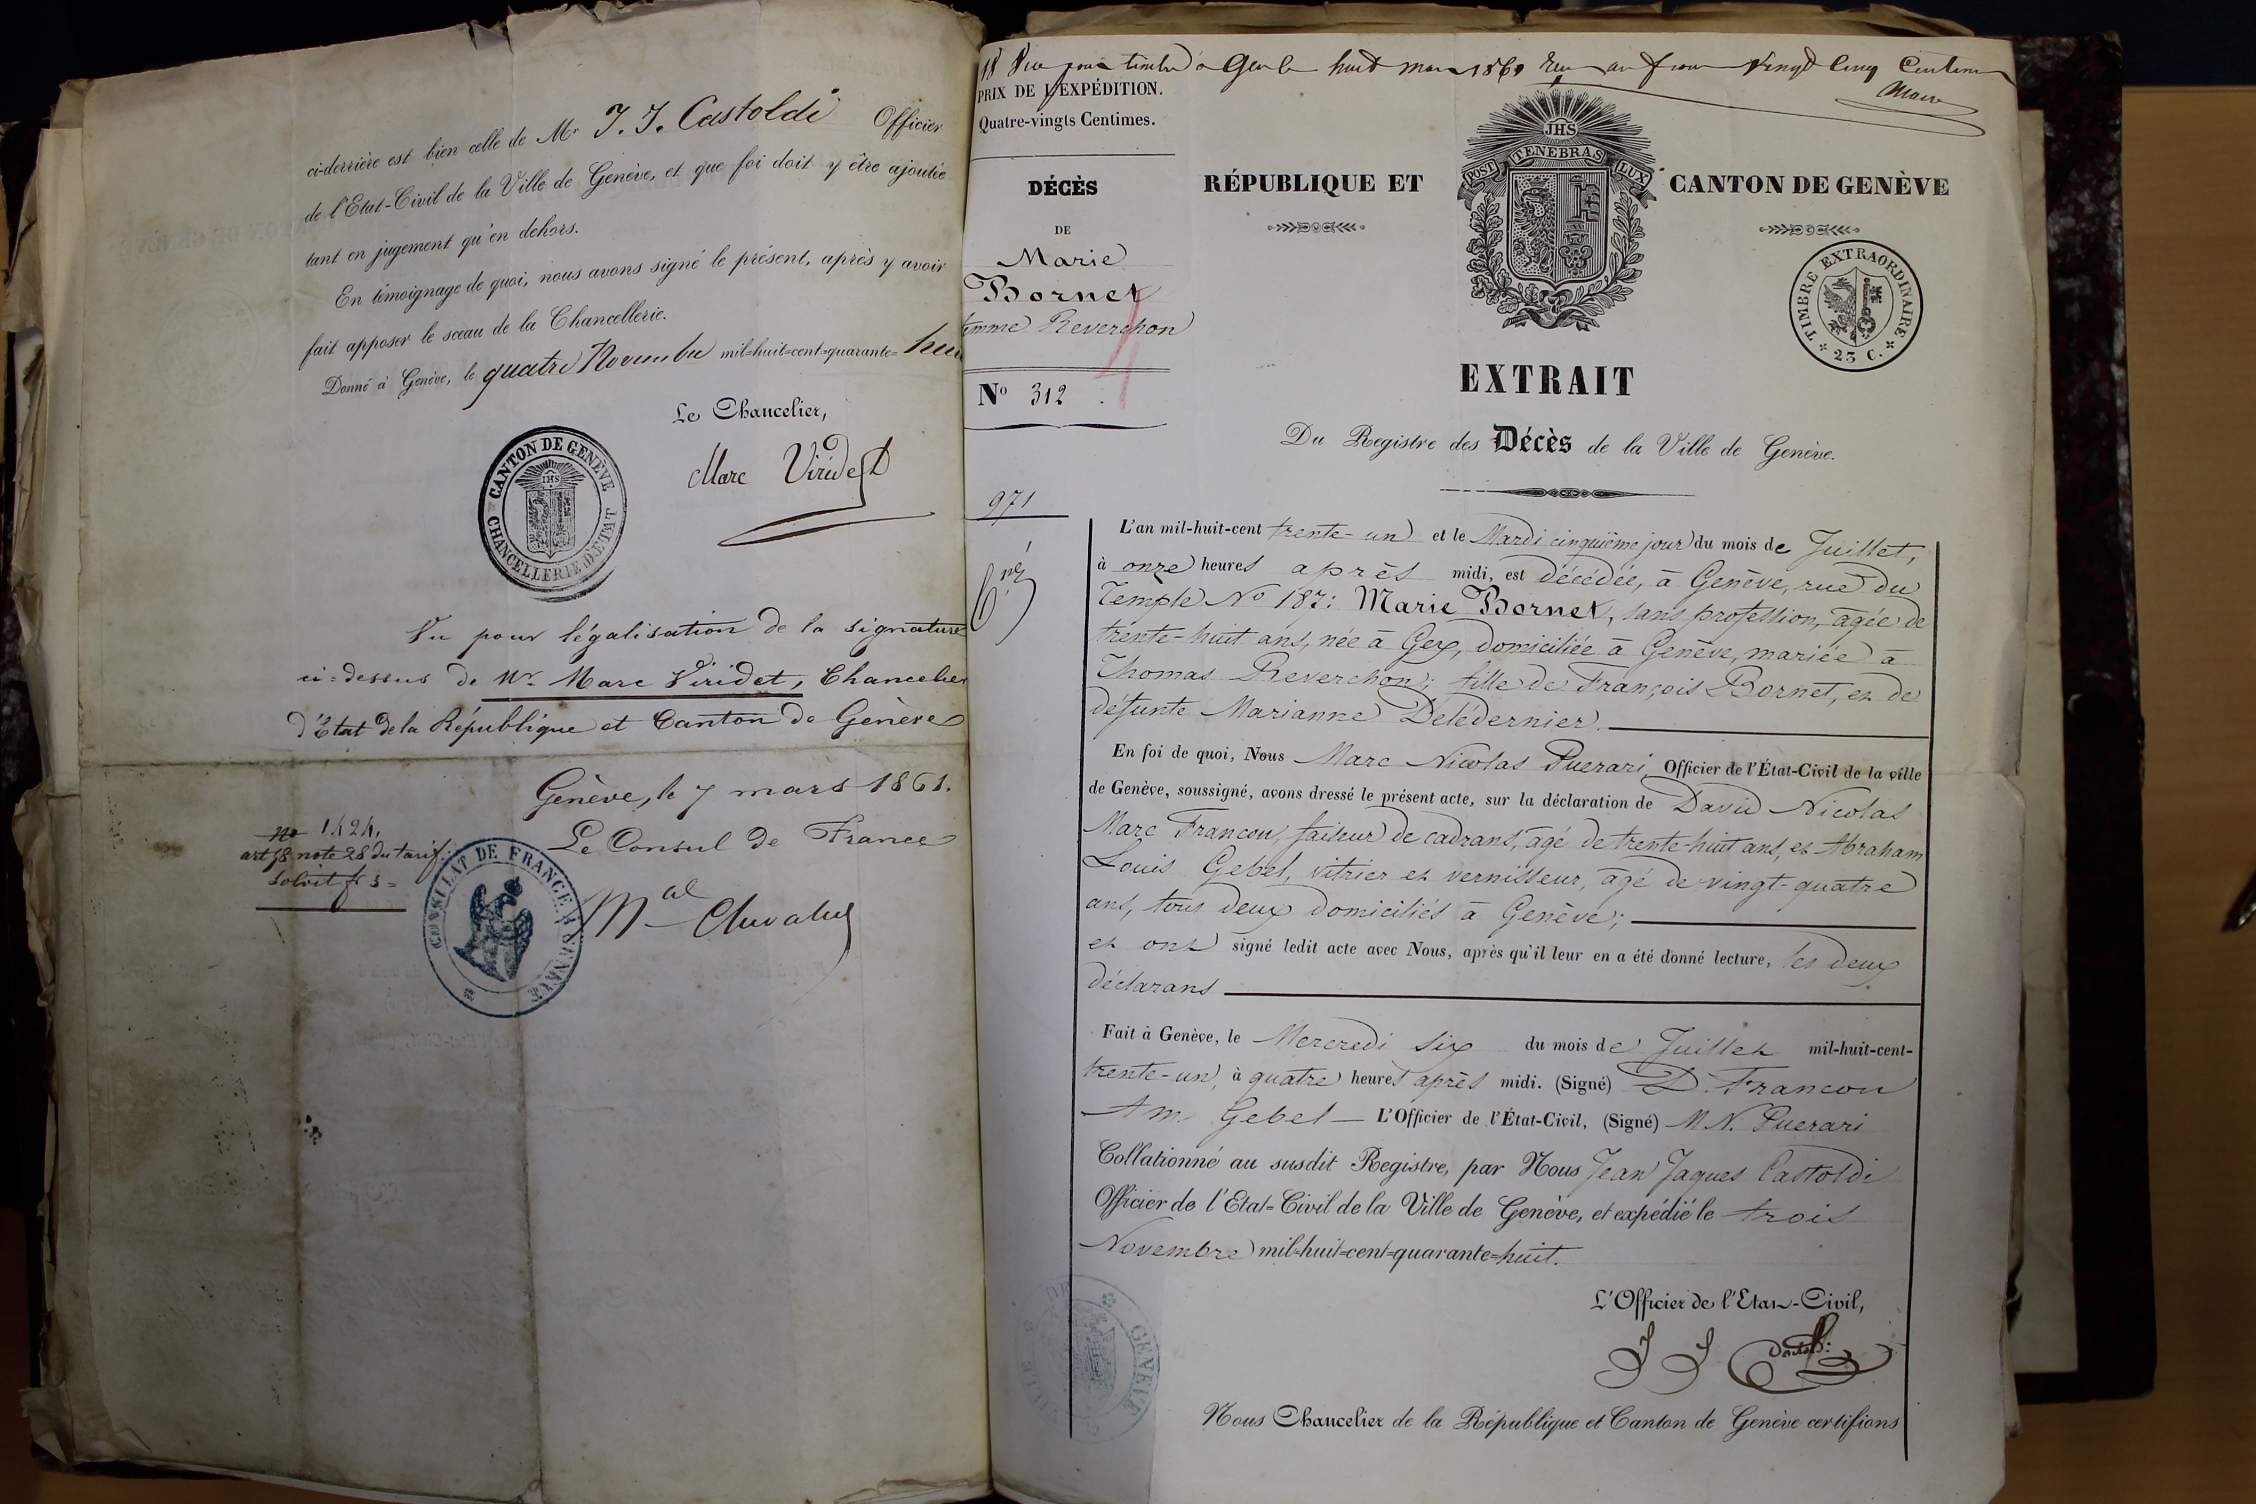 ci-derrière est bien celle de Mr J. J. Castoldi Officier
de l'Etat-Civil de la Ville de Genève, et que foi doit y être ajoutée
tant en jugement qu'en dehors.
En témoignage de quoi, nous avons signé le présent, après y avoir
fait apposer le sceau de la Chancellerie.
Donné à Genève, le quatre Novembre mil=huit=cent=quarante=
Le Chancelier,
Marc Viridet
CANTON DE GENÈVE
CHANCELLERIE D'ÉTAT
IHS
Vu pour légalisation de la signature
ci=dessus de Mr Marc Viridet, Chancelier
d'État de la République et Canton de Genève
Genève, le 7 mars 1861.
Le Consul de France
No 1424,
art 78 note 28 du tarif.
solvit fr 3=
CONSULAT DE FRANCE A GENÈVE
Mal Chevalier
Vu pour timbre à Gex le huit mars 1861 un franc vingt cinq Centimes
PRIX DE L'EXPÉDITION.
Quatre-vingts Centimes.
DÉCÈS
DE
Marie
Bornet
femme Reverchon
No 312
971
JHS
POST TENEBRAS LUX
RÉPUBLIQUE ET CANTON DE GENÈVE
TIMBRE EXTRAORDINAIRE
* 25 C. *
EXTRAIT
Du Registre des Décès de la Ville de Genève.
L'an mil-huit-cent trente-un et le Mardi cinquième jour du mois de Juillet,
à onze heures après midi, est décédée, à Genève, rue du
Temple No 187: Marie Bornet, sans profession, âgée de
trente-huit ans, née à Gex, domiciliée à Genève, mariée à
Thomas Reverchon; fille de François Bornet, et de
défunte Marianne Delédernier.
En foi de quoi, Nous Marc Nicolas Puerari, Officier de l'État-Civil de la ville
de Genève, soussigné, avons dressé le présent acte, sur la déclaration de David Nicolas
Marc Francou, faiseur de cadrans, âgé de trente-huit ans, et Abraham
Louis Gebel, vitrier et vernisseur, âgé de vingt-quatre
ans, tous deux domiciliés à Genève;
et ont signé ledit acte avec Nous, après qu'il leur en a été donné lecture, les deux
déclarans
Fait à Genève, le Mercredi six du mois de Juillet mil-huit-cent-
trente-un, à quatre heures après midi. (Signé) D. Francou
Am. Gebel — L'Officier de l'État-Civil, (Signé) M. N. Puerari
Collationné au susdit Registre, par Nous Jean Jaques Castoldi
Officier de l'Etat=Civil de la Ville de Genève, et expédié le trois
Novembre mil=huit=cent=quarante=huit.
L'Officier de l'Etat-Civil,
J J Castoldi
GENÈVE
Nous Chancelier de la République et Canton de Genève certifions